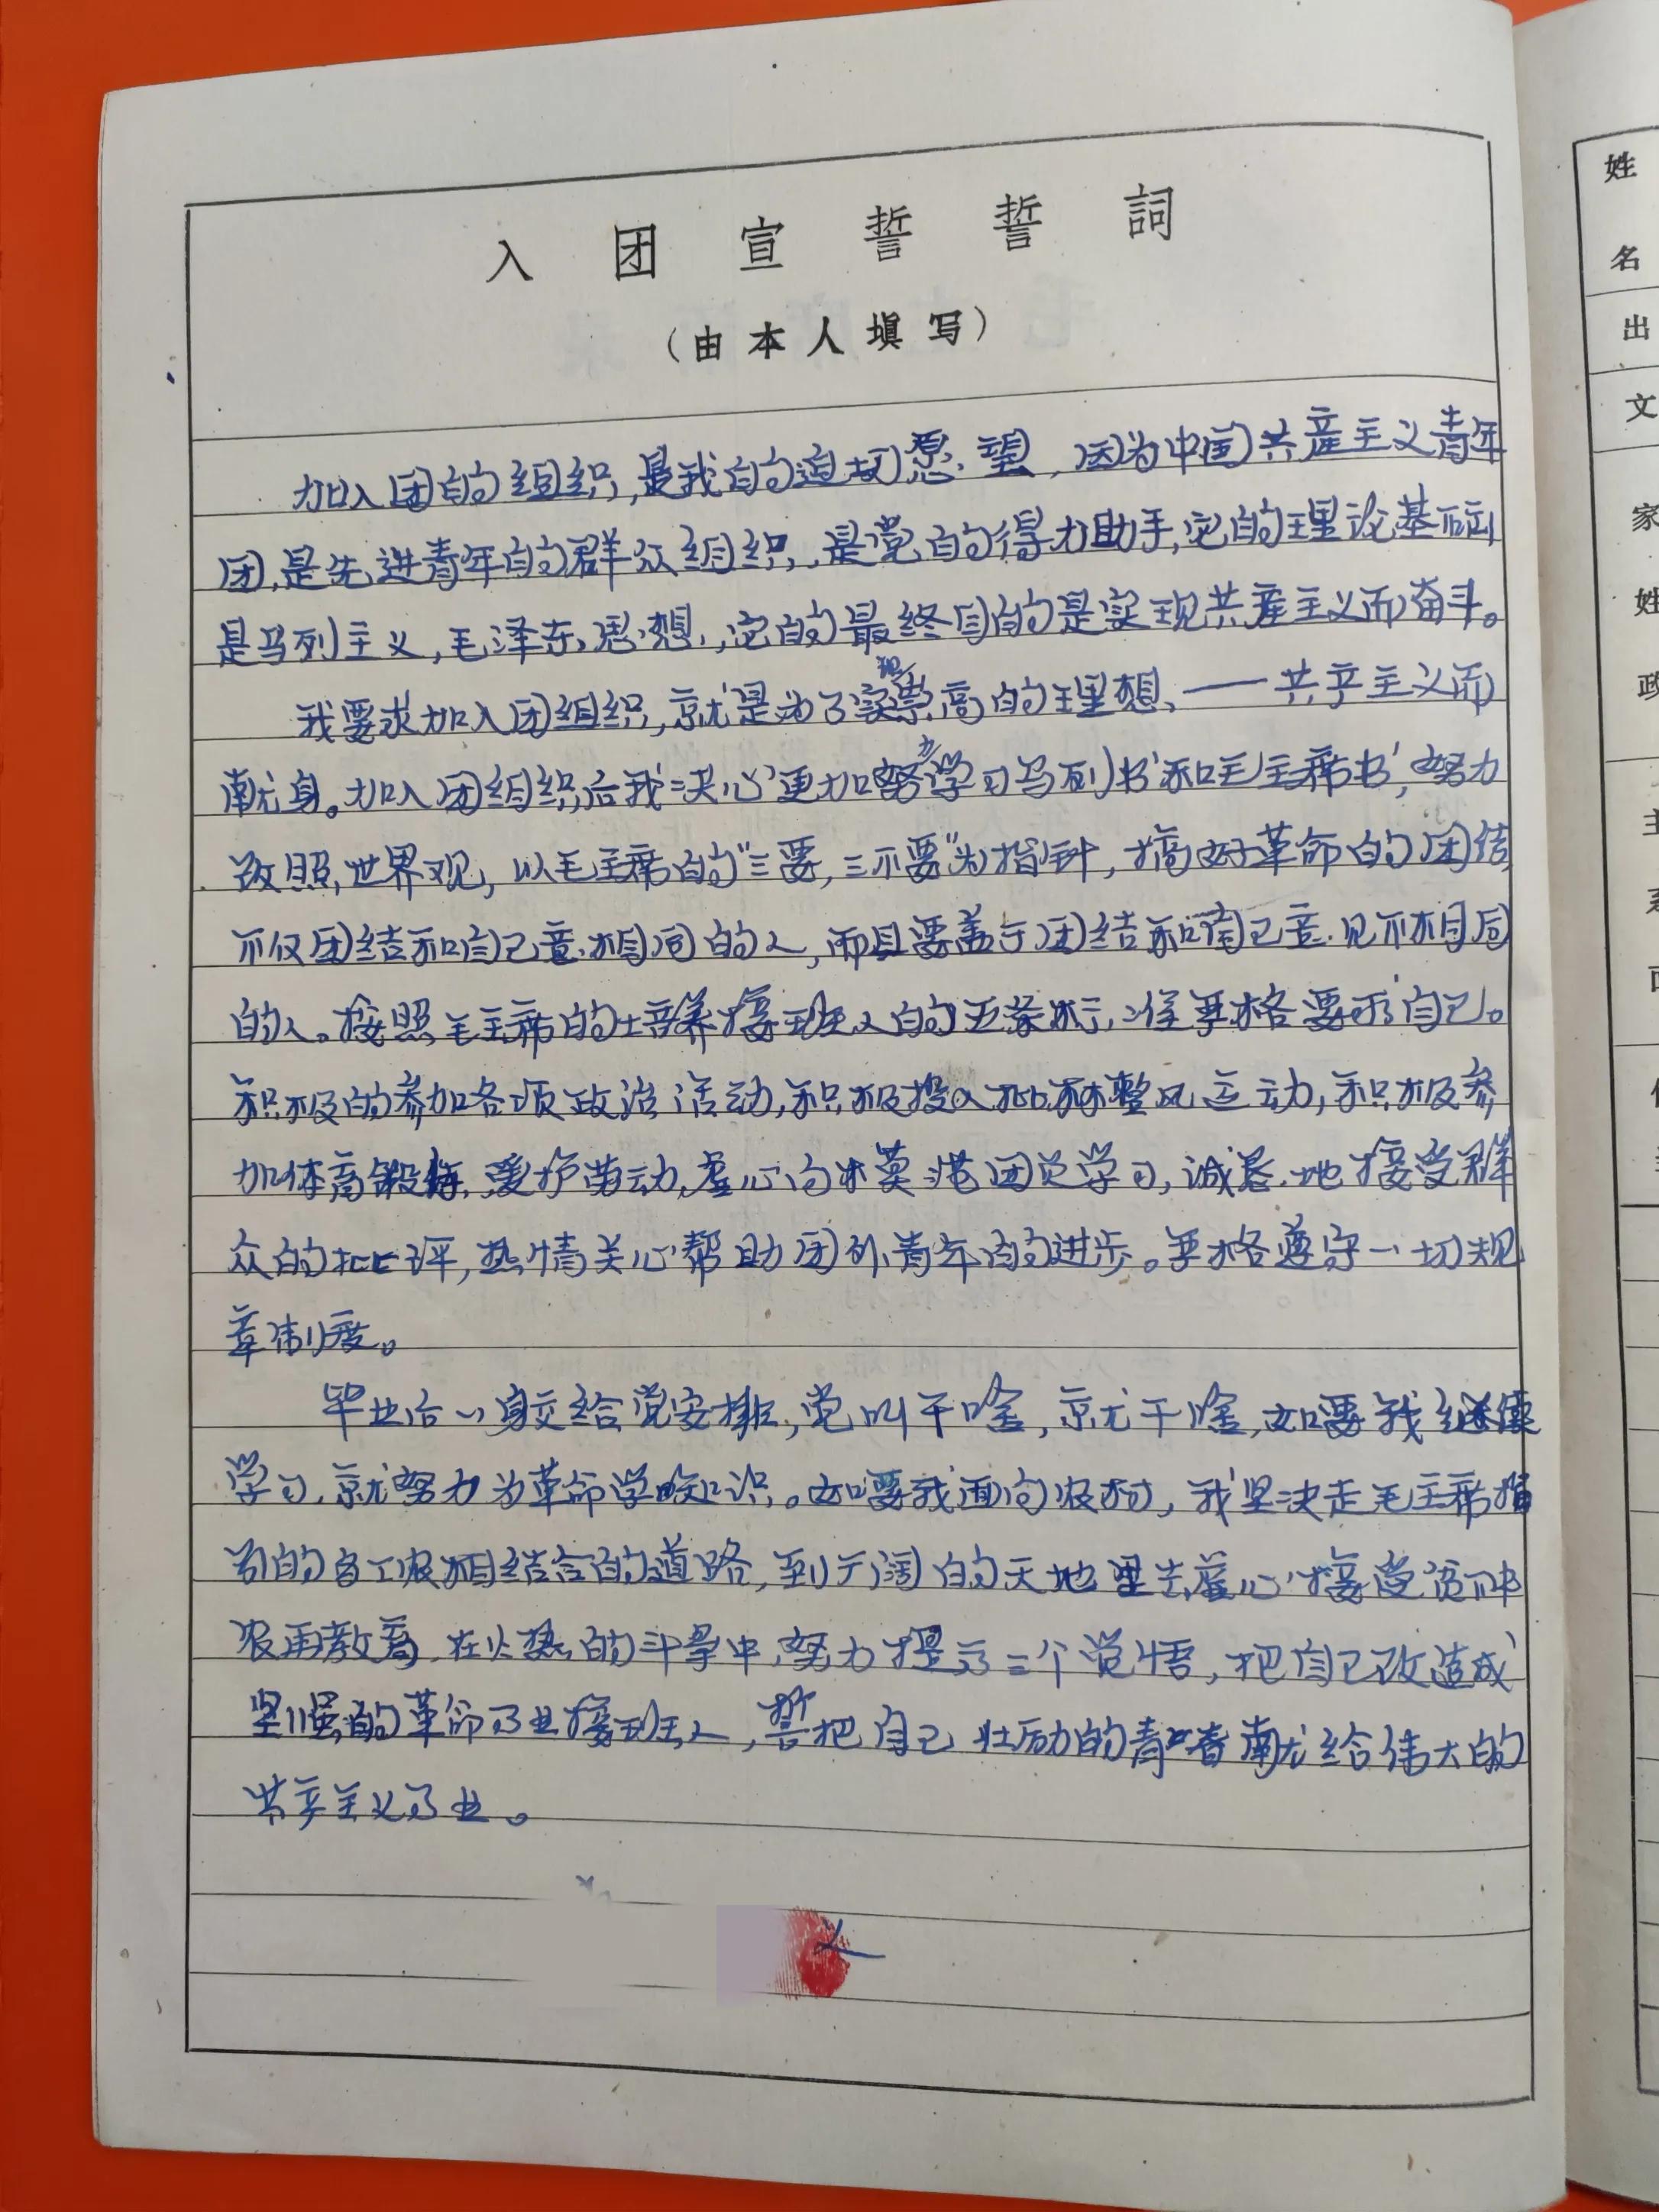 入团宣誓誓詞
（由本人填写）
加入团的组织，是我的迫切愿望，因为中国共产主义青年
团，是先进青年的群众组织，是党的得力助手，它的理论基础
是马列主义，毛泽东思想，它的最终目的是实现共产主义而奋斗。
我要求加入团组织，就是为了实现崇高的理想、——共产主义而
献身。加入团组织后我决心更加努力学习马列书和毛主席书，努力
改照世界观，以毛主席的“三要，三不要”为指针，搞好革命的团结
不仅团结和自己意相同的人，而且要善于团结和自己意见不相同
的人。按照毛主席的培养接班人的五条标准严格要求自己。
积极的参加各项政治活动，积极投入批林整风运动，积极参
加体育锻练，爱护劳动，虚心向木英港团员学习，诚恳地接受群
众的批评，热情关心帮助团外青年的进步。严格遵守一切规
章制度。
毕业后一身交给党安排，党叫干啥，就干啥，如要我继续
学习，就努力为革命学啥知识。如要我面向农村，我坚决走毛主席指
引的与工农相结合的道路，到广阔的天地里去虚心接受贫下中
农再教育，在火热的斗争中，努力提高三个觉悟，把自己改造成
坚强的革命事业接班人，誓把自己壮励的青春献给伟大的
共产主义事业。
姓
名
出
文
家
姓
政
主